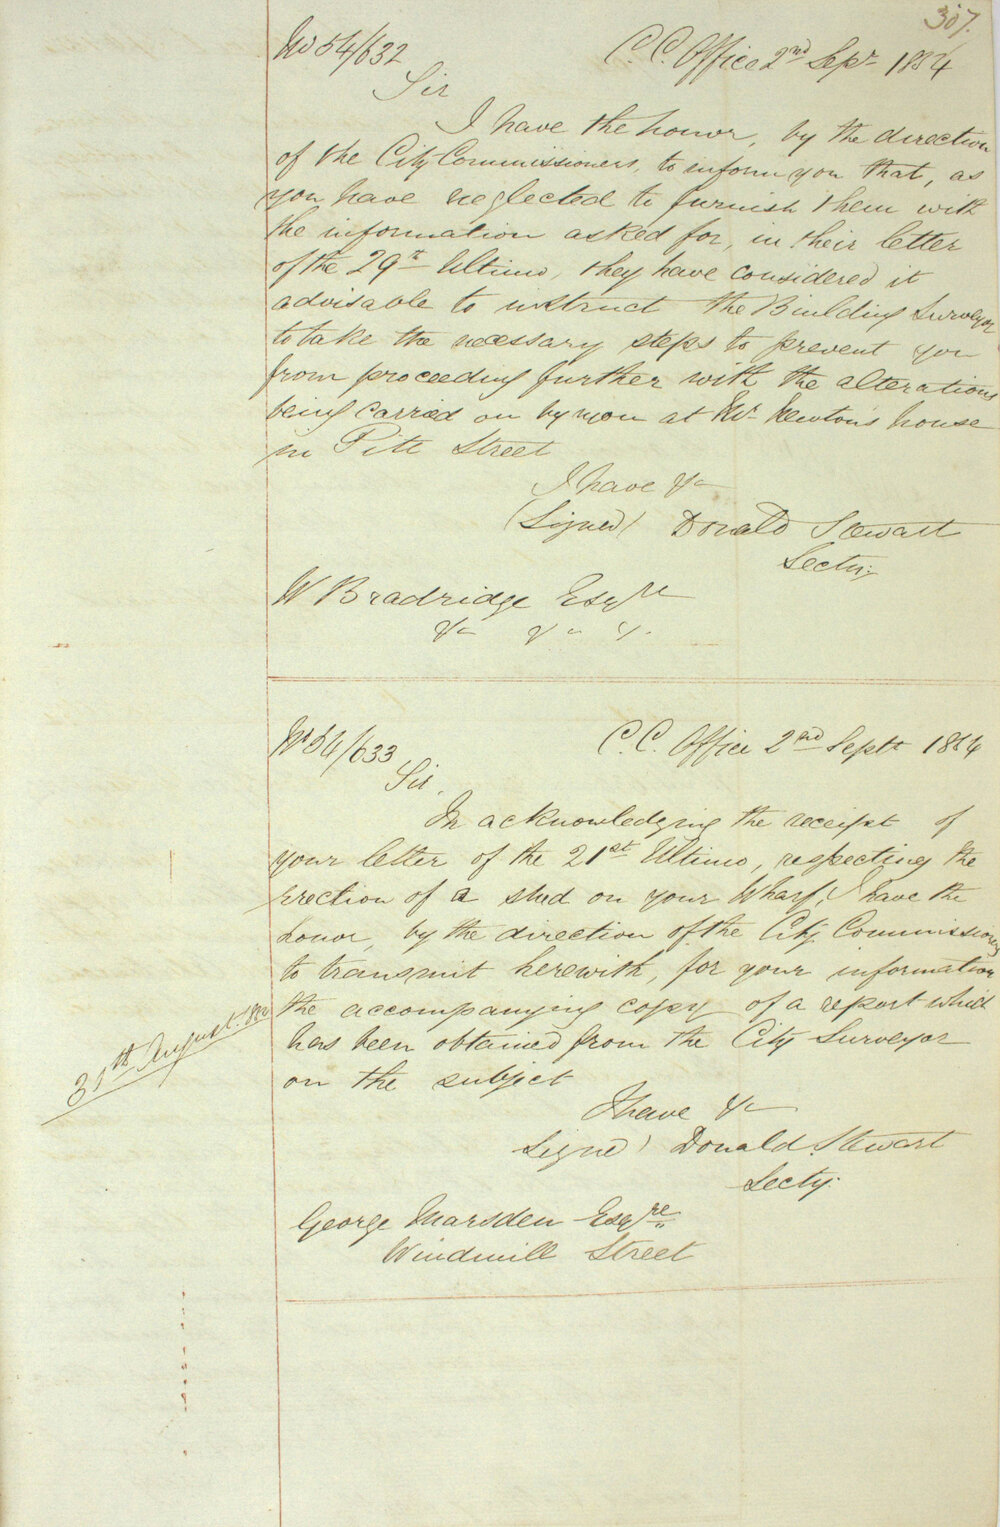 307.
No 54/632
C.C. Office 2nd Sepr 1854
Sir
I have the honor, by the direction
of the City Commissioners, to inform you that, as
you have neglected to furnish them with
the information asked for, in their letter
of the 29th Ultimo, they have considered it
advisable to instruct the Building Surveyor
to take the necessary steps to prevent you
from proceeding further with the alterations
being carried on by you at Mr. Newton's house
in Pitt Street
I have &c
(Signed) Donald Stewart
Secty.
W Bradridge Esqre
&c &c &.
No 54/633
C.C. Office 2nd Septr 1854
Sir,
In acknowledging the receipt of
your letter of the 21st Ultimo, respecting the
erection of a shed on your Wharf, I have the
honor, by the direction of the City Commissioners
to transmit herewith, for your information
31th August.
the accompanying copy of a report which
has been obtained from the City Surveyor
on the subject
I have &c
Signed) Donald Stewart
Secty.
George Marsden Esqre
Windmill Street